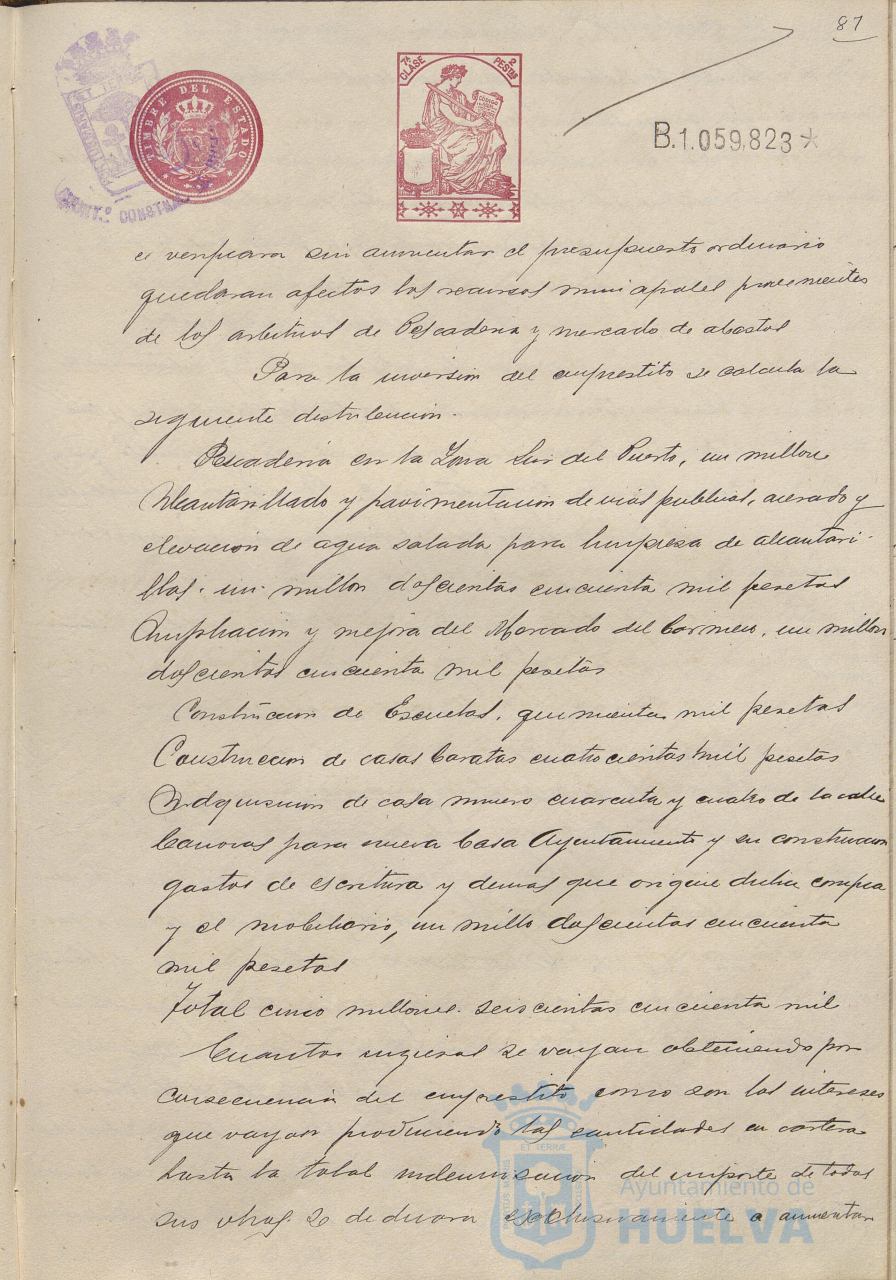 87
TIMBRE DEL ESTADO
7ª CLASE 2 PESTAS
CODIGO
B.1.059,823*
AYUNTº CONST
se verificara sin aumentar el presupuesto ordinario
quedaran afectos los recursos municipales provenientes
de los arbitrios de Pescaderia y mercado de abastos
Para la inversion del emprestito se calcula la
siguiente distribucion.
Pescaderia en la Zona Sur del Puerto, un millon
Alcantarillado y pavimentacion de vias publicas, acerado y
elevacion de agua salada para limpiesa de alcantari-
llas. un millon doscientas cincuenta mil pesetas
Ampliacion y mejora del Mercado del Carmen, un millon
doscientas cincuenta mil pesetas
Construcion de Escuelas, quinientas mil pesetas
Construccion de casas baratas cuatrocientas mil pesetas
Adquisicion de casa numero cuarenta y cuatro de la calle
Canovas para nueva Casa Ayuntamiento y su construccion
gastos de escritura y demas que origine dicha compra
y el mobiliario, un millo doscientas cincuenta
mil pesetas
Total cinco millones seiscientas cincuenta mil
Cuantos ingresos se vayan obteniendo por
consecuencia del emprestito como son los intereses
que vayan produciendo las cantidades en cartera
hasta la total indemnisacion del importe de todas
sus obras se dedicara exclusivamente a aumentar
ET TERRÆ
Ayuntamiento de
HUELVA